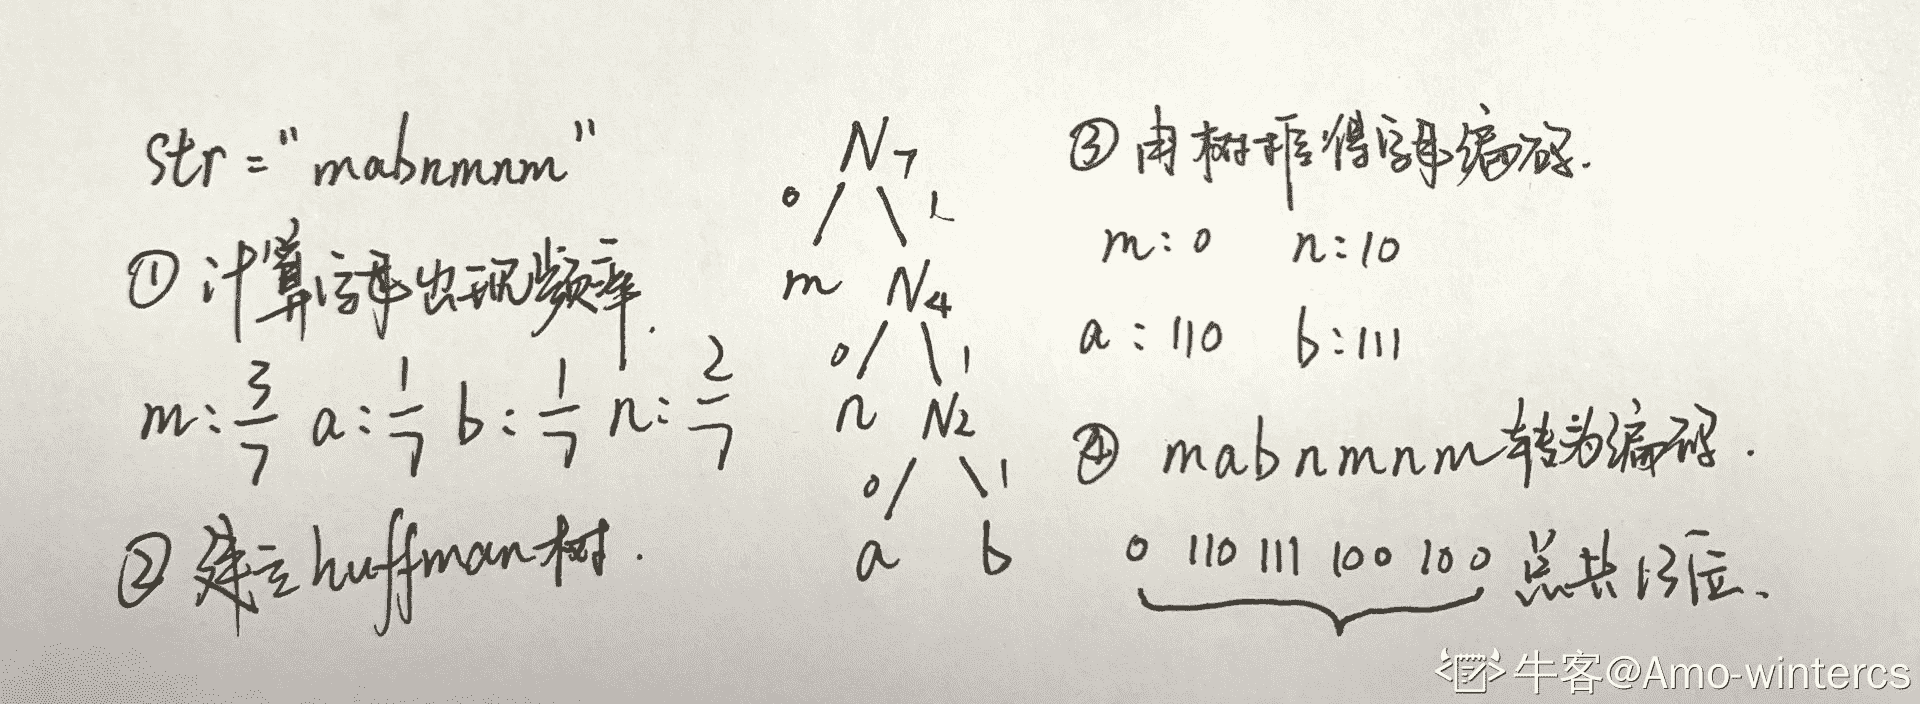 str = "mabnmnm"
① 计算字母出现频率.
m: 3/7 a: 1/7 b: 1/7 n: 2/7
② 建立huffman树.
N7
0 1
m N4
0 1
n N2
0 1
a b
③ 由树推得字母编码.
m: 0 n: 10
a: 110 b: 111
④ mabnmnm转为编码.
0 110 111 100 100 总共13位.
牛客@Amo-wintercs